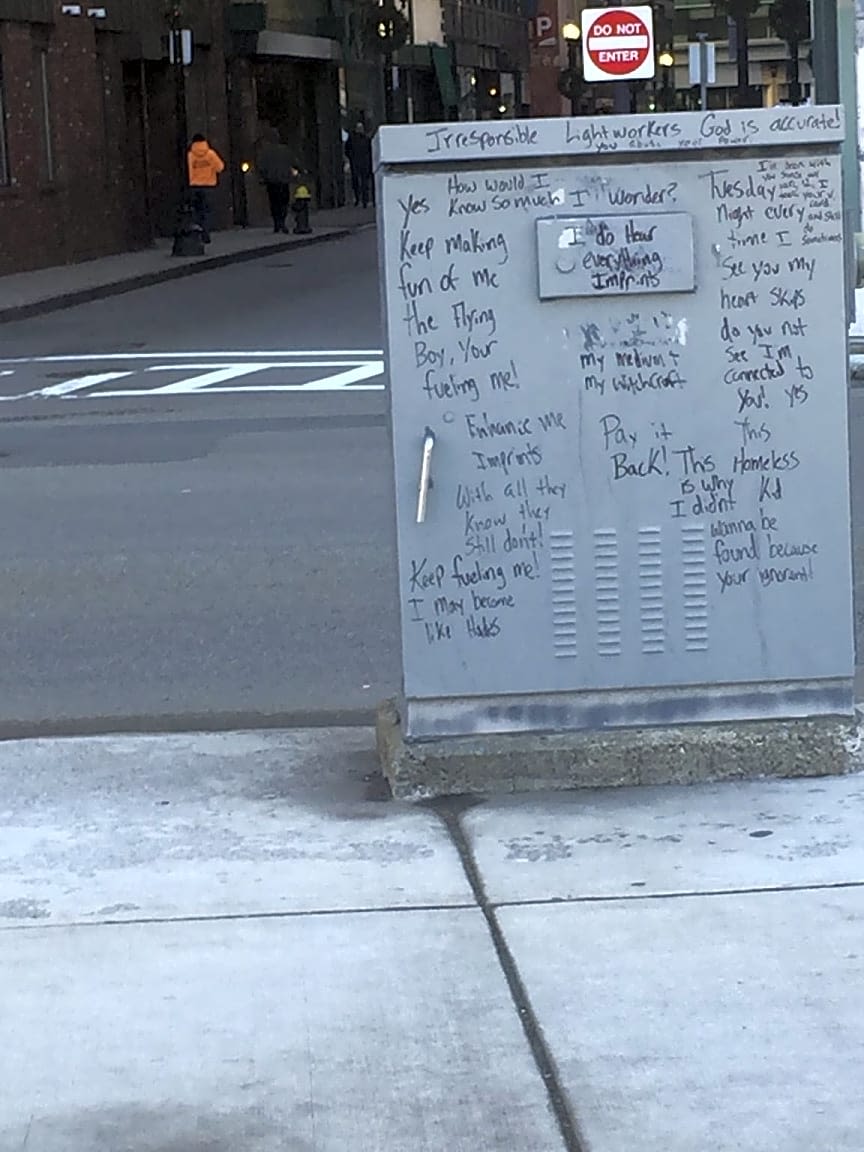 DO NOT
ENTER
P
Irresponsible Lightworkers God is accurate!
you abuse your power
How would I
yes know so much I wonder?
Keep making
fun of me
the Flying
Boy, your
fueling me!
Enhance me
Imprints
With all they
Know they
Still don't!
Keep fueling me!
I may become
like Hades
I do Hear
everything
Imprints
my medium +
my witchcraft
Pay it
Back! This
is why
I didnt
Tuesday
Night every
time I
See you my
heart skips
do you not
See I'm
connected to
you! yes
This
Homeless
Kid
wanna be
found because
your ignorant!
and still
do
sometimes